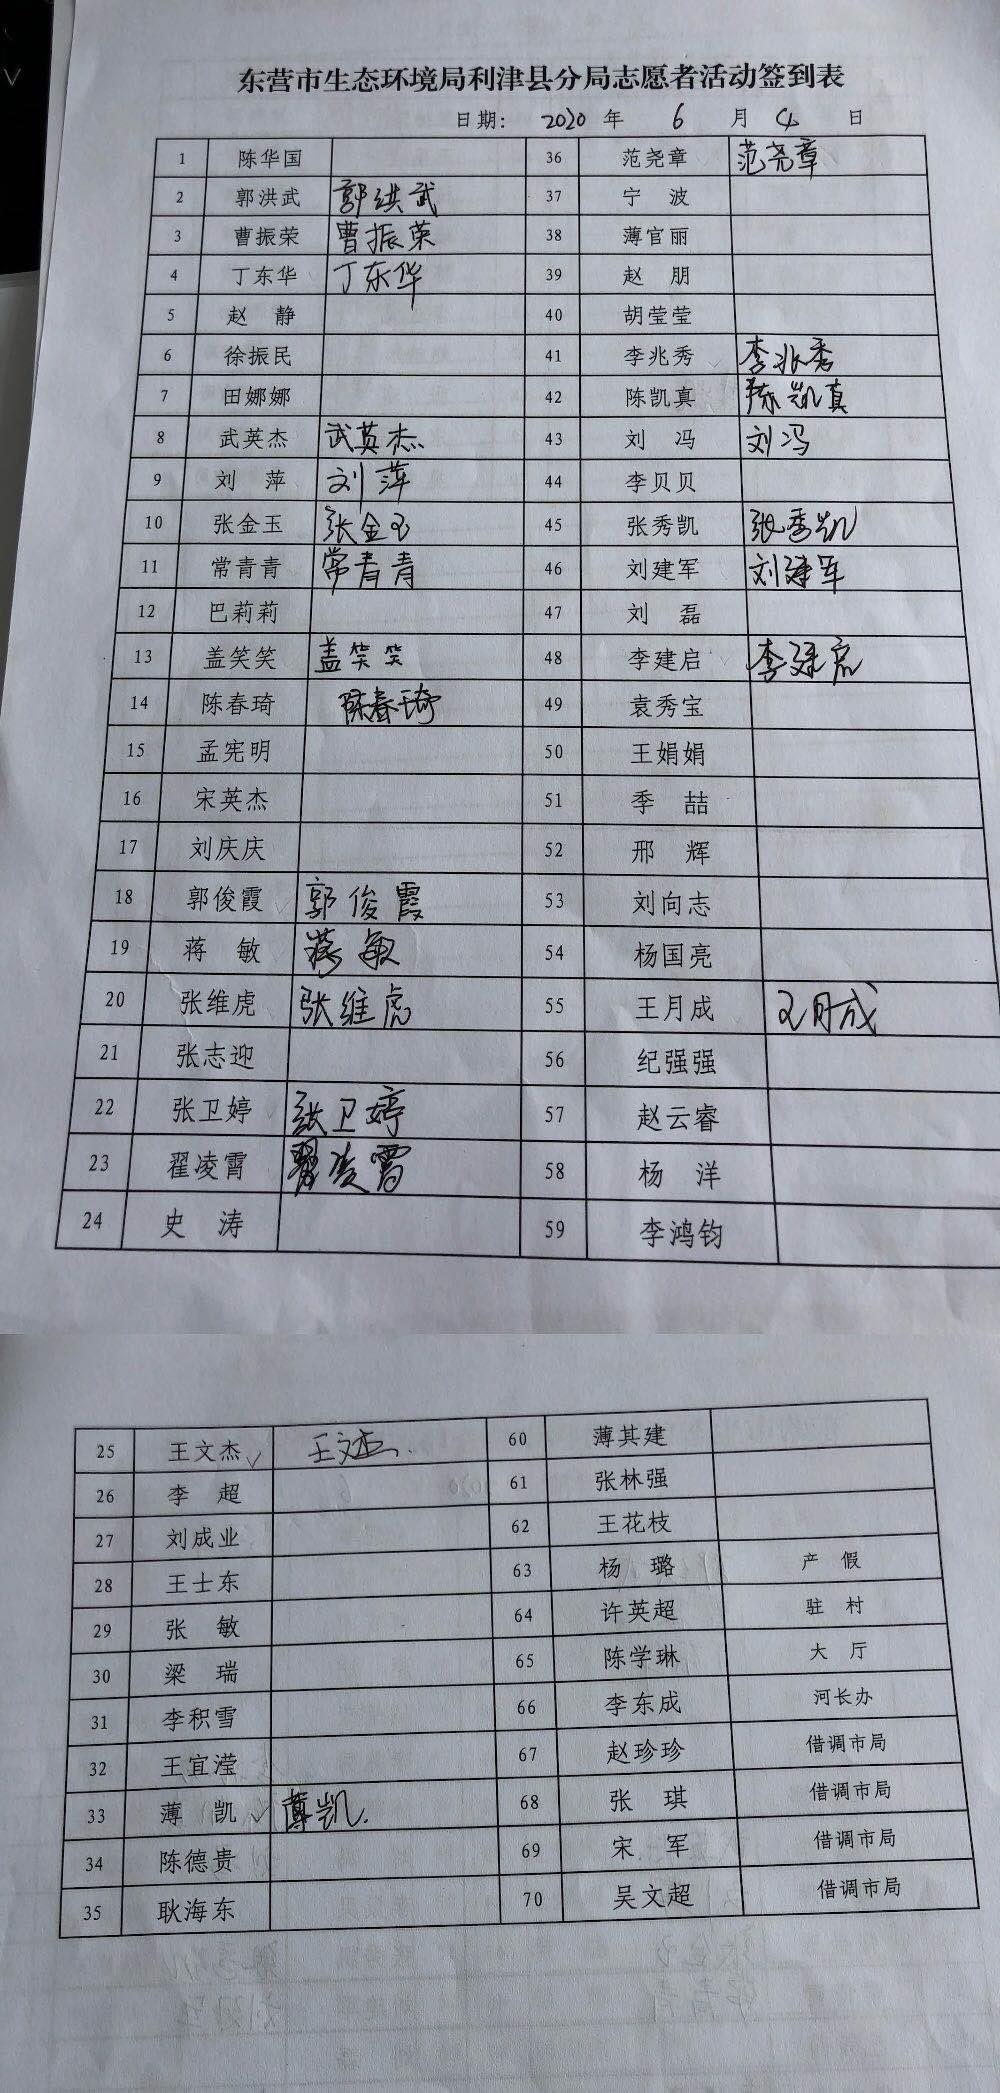 东营市生态环境局利津县分局志愿者活动签到表
日期: 2020 年 6 月 4 日
1 陈华国 36 范尧章 范尧章
2 郭洪武 郭洪武 37 宁 波
3 曹振荣 曹振荣 38 薄官丽
4 丁东华 丁东华 39 赵 朋
5 赵 静 40 胡莹莹
6 徐振民 41 李兆秀 李兆秀
7 田娜娜 42 陈凯真 陈凯真
8 武英杰 武英杰 43 刘 冯 刘冯
9 刘 萍 刘萍 44 李贝贝
10 张金玉 张金玉 45 张秀凯 张秀凯
11 常青青 常青青 46 刘建军 刘建军
12 巴莉莉 47 刘 磊
13 盖笑笑 盖笑笑 48 李建启 李建启
14 陈春琦 陈春琦 49 袁秀宝
15 孟宪明 50 王娟娟
16 宋英杰 51 季 喆
17 刘庆庆 52 邢 辉
18 郭俊霞 郭俊霞 53 刘向志
19 蒋 敏 蒋敏 54 杨国亮
20 张维虎 张维虎 55 王月成 王月成
21 张志迎 56 纪强强
22 张卫婷 张卫婷 57 赵云睿
23 翟凌霄 翟凌霄 58 杨 洋
24 史 涛 59 李鸿钧
25 王文杰 ✓ 王文杰 60 薄其建
26 李 超 61 张林强
27 刘成业 62 王花枝
28 王士东 63 杨 璐 产 假
29 张 敏 64 许英超 驻 村
30 梁 瑞 65 陈学琳 大 厅
31 李积雪 66 李东成 河长办
32 王宜滢 67 赵珍珍 借调市局
33 薄 凯 ✓ 薄凯. 68 张 琪 借调市局
34 陈德贵 69 宋 军 借调市局
35 耿海东 70 吴文超 借调市局